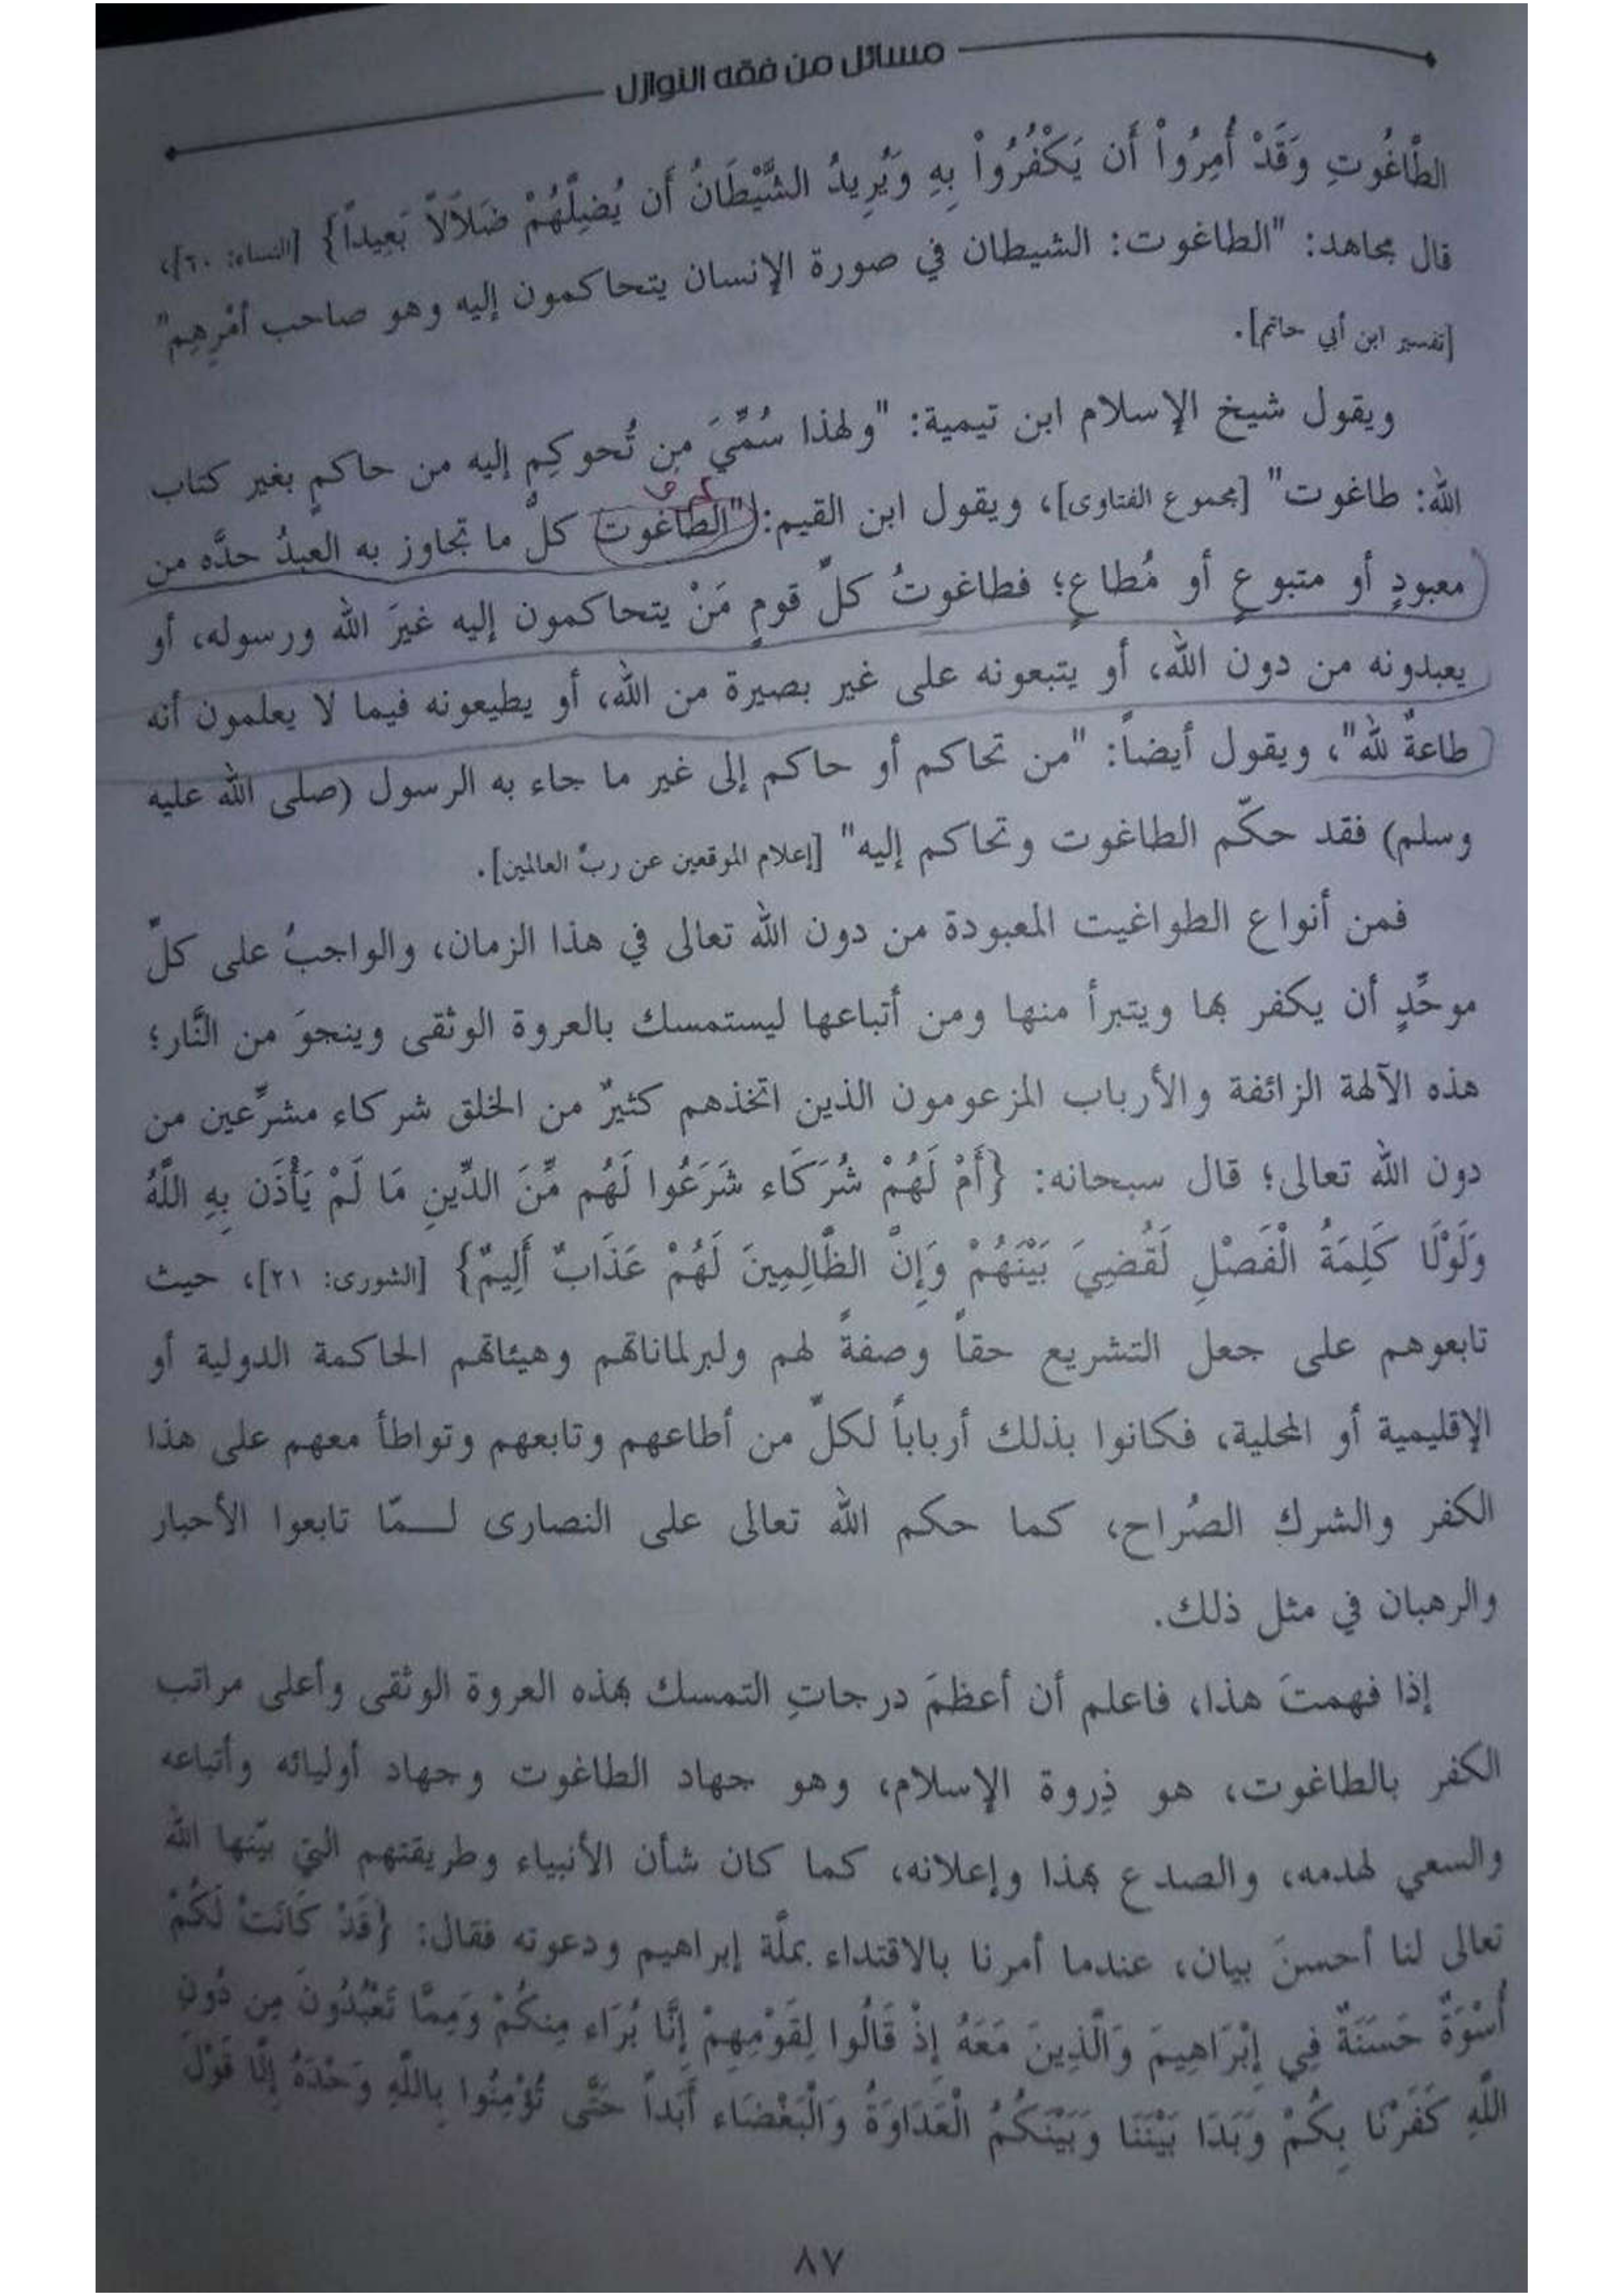 مسائل من فقه النوازل
الطَّاغُوتِ وَقَدْ أُمِرُواْ أَن يَكْفُرُواْ بِهِ وَيُرِيدُ الشَّيْطَانُ أَن يُضِلَّهُمْ ضَلاَلاً بَعِيداً} [النساء: ٦٠]،
قال مجاهد: "الطاغوت: الشيطان في صورة الإنسان يتحاكمون إليه وهو صاحب أمْرِهِم"
[تفسير ابن أبي حاتم].
ويقول شيخ الإسلام ابن تيمية: "ولهذا سُمِّيَ مِن تُحوكِم إليه من حاكمٍ بغير كتاب
الله: طاغوت" [مجموع الفتاوى]، ويقول ابن القيم: "الطاغوت كلُّ ما تجاوز به العبدُ حدَّه من
معبودٍ أو متبوعٍ أو مُطاعٍ؛ فطاغوتُ كلِّ قومٍ مَنْ يتحاكمون إليه غيرَ الله ورسوله، أو
يعبدونه من دون الله، أو يتبعونه على غير بصيرة من الله، أو يطيعونه فيما لا يعلمون أنه
طاعةٌ لله"، ويقول أيضاً: "من تحاكم أو حاكم إلى غير ما جاء به الرسول (صلى الله عليه
وسلم) فقد حكّم الطاغوت وتحاكم إليه" [إعلام الموقعين عن ربِّ العالمين].
فمن أنواع الطواغيت المعبودة من دون الله تعالى في هذا الزمان، والواجبُ على كلِّ
موحِّدٍ أن يكفر بها ويتبرأ منها ومن أتباعها ليستمسك بالعروة الوثقى وينجوَ من النَّار؛
هذه الآلهة الزائفة والأرباب المزعومون الذين اتخذهم كثيرٌ من الخلق شركاء مشرِّعين من
دون الله تعالى؛ قال سبحانه: {أَمْ لَهُمْ شُرَكَاء شَرَعُوا لَهُم مِّنَ الدِّينِ مَا لَمْ يَأْذَن بِهِ اللَّهُ
وَلَوْلَا كَلِمَةُ الْفَصْلِ لَقُضِيَ بَيْنَهُمْ وَإِنَّ الظَّالِمِينَ لَهُمْ عَذَابٌ أَلِيمٌ} [الشورى: ٢١]، حيث
تابعوهم على جعل التشريع حقاً وصفةً لهم ولبرلماناتهم وهيئاتهم الحاكمة الدولية أو
الإقليمية أو المحلية، فكانوا بذلك أرباباً لكلِّ من أطاعهم وتابعهم وتواطأ معهم على هذا
الكفر والشرك الصُراح، كما حكم الله تعالى على النصارى لـمّا تابعوا الأحبار
والرهبان في مثل ذلك.
إذا فهمتَ هذا، فاعلم أن أعظمَ درجاتِ التمسك بهذه العروة الوثقى وأعلى مراتب
الكفر بالطاغوت، هو ذِروة الإسلام، وهو جهاد الطاغوت وجهاد أوليائه وأتباعه
والسعي لهدمه، والصدع بهذا وإعلانه، كما كان شأن الأنبياء وطريقتهم التي بيّنها الله
تعالى لنا أحسنَ بيان، عندما أمرنا بالاقتداء بملَّة إبراهيم ودعوته فقال: {قَدْ كَانَتْ لَكُمْ
أُسْوَةٌ حَسَنَةٌ فِي إِبْرَاهِيمَ وَالَّذِينَ مَعَهُ إِذْ قَالُوا لِقَوْمِهِمْ إِنَّا بُرَاء مِنكُمْ وَمِمَّا تَعْبُدُونَ مِن دُونِ
اللَّهِ كَفَرْنَا بِكُمْ وَبَدَا بَيْنَنَا وَبَيْنَكُمُ الْعَدَاوَةُ وَالْبَغْضَاء أَبَداً حَتَّى تُؤْمِنُوا بِاللَّهِ وَحْدَهُ إِلَّا قَوْلَ
٨٧